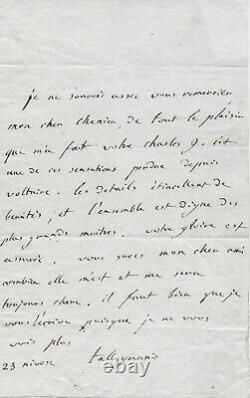 je ne saurois assez vous remercier
mon cher chenier, de tout le plaisir
que m'a fait votre charles 9. c'est
une de ces sensations perdue depuis
voltaire. les details étincellent de
beautés, et l'ensemble est digne des
plus grands maitres. votre gloire est
assurée. vous savez mon cher ami
combien elle m'est et me sera
toujours chere. il faut bien que je
vous l'écrive puisque je ne vous
vois plus
23 nivose talleyrand
© thepenmarket.com